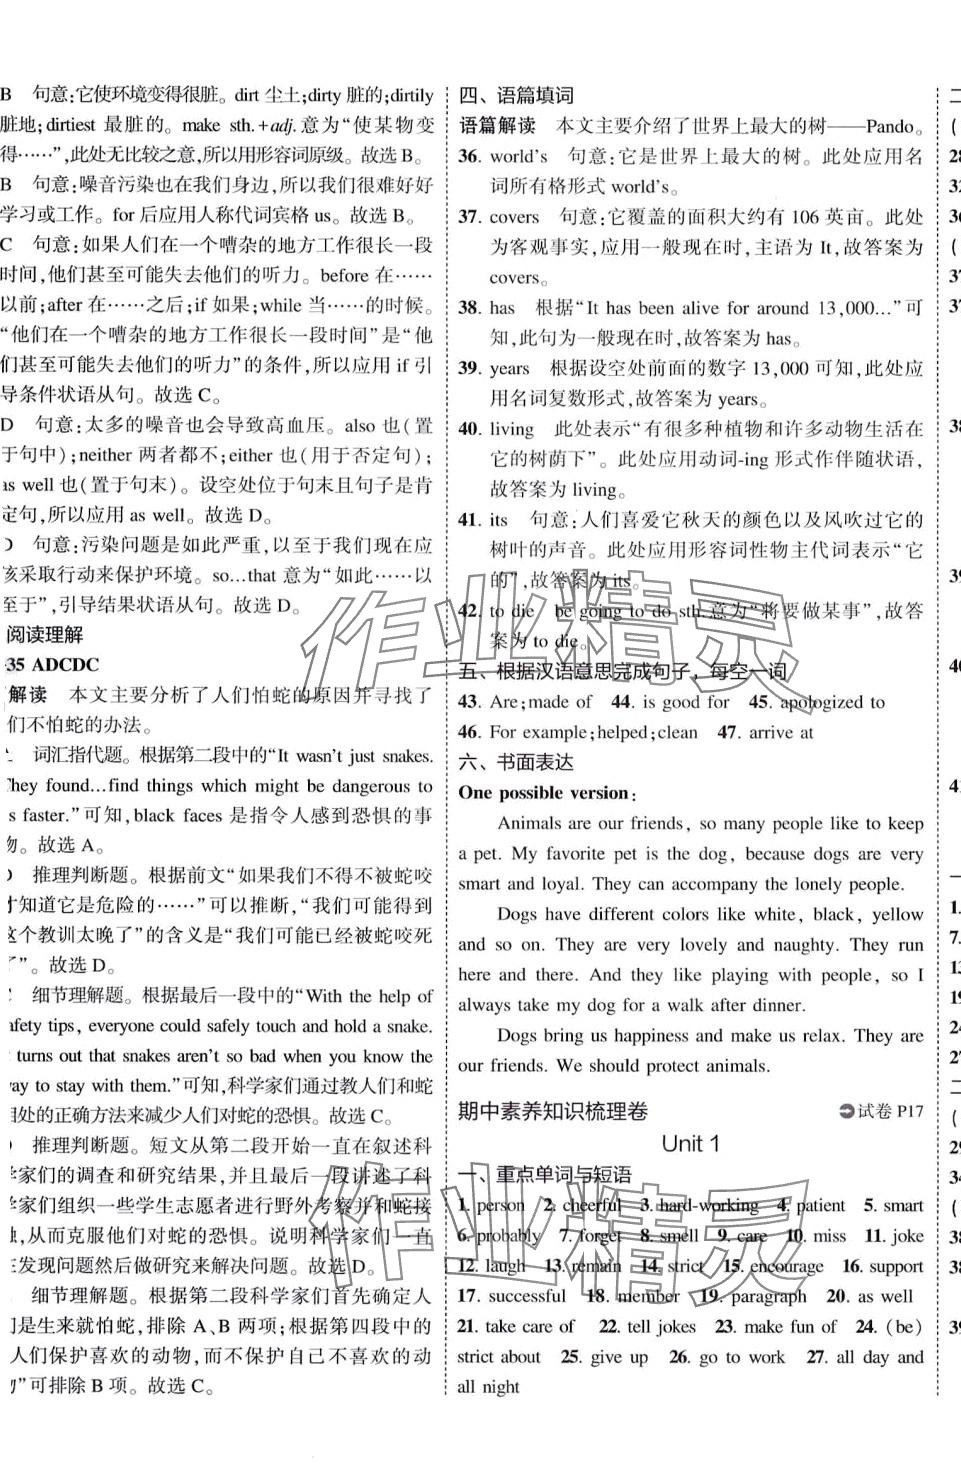 B 句意:它使环境变得很脏。dirt 尘土;dirty 脏的;dirtily
脏地;dirtiest 最脏的。make sth.+adj.意为“使某物变
得……”,此处无比较之意,所以用形容词原级。故选 B。
B 句意:噪音污染也在我们身边,所以我们很难好好
学习或工作。for 后应用人称代词宾格 us。故选 B。
C 句意:如果人们在一个嘈杂的地方工作很长一段
时间,他们甚至可能失去他们的听力。before 在……
以前;after 在……之后;if 如果;while 当……的时候。
“他们在一个嘈杂的地方工作很长一段时间”是“他
们甚至可能失去他们的听力”的条件,所以应用 if 引
导条件状语从句。故选 C。
D 句意:太多的噪音也会导致高血压。also 也(置
于句中);neither 两者都不;either 也(用于否定句);
as well 也(置于句末)。设空处位于句末且句子是肯
定句,所以应用 as well。故选 D。
D 句意:污染问题是如此严重,以至于我们现在应
该采取行动来保护环境。so…that 意为“如此……以
至于”,引导结果状语从句。故选 D。
阅读理解
35 ADCDC
解读 本文主要分析了人们怕蛇的原因并寻找了
们不怕蛇的办法。
词汇指代题。根据第二段中的“It wasn't just snakes.
They found…find things which might be dangerous to
us faster.”可知,black faces 是指令人感到恐惧的事
物。故选 A。
D 推理判断题。根据前文“如果我们不得不被蛇咬
才知道它是危险的……”可以推断,“我们可能得到
这个教训太晚了”的含义是“我们可能已经被蛇咬死
了”。故选 D。
C 细节理解题。根据最后一段中的“With the help of
safety tips, everyone could safely touch and hold a snake.
turns out that snakes aren't so bad when you know the
way to stay with them.”可知,科学家们通过教人们和蛇
相处的正确方法来减少人们对蛇的恐惧。故选 C。
D 推理判断题。短文从第二段开始一直在叙述科
学家们的调查和研究结果,并且最后一段讲述了科
学家们组织一些学生志愿者进行野外考察并和蛇接
触,从而克服他们对蛇的恐惧。说明科学家们一直
在发现问题然后做研究来解决问题。故选 D。
细节理解题。根据第二段科学家们首先确定人
们是生来就怕蛇,排除 A、B 两项;根据第四段中的
人们保护喜欢的动物,而不保护自己不喜欢的动
物”可排除 B 项。故选 C。
四、语篇填词
语篇解读 本文主要介绍了世界上最大的树——Pando。
36. world's 句意:它是世界上最大的树。此处应用名
词所有格形式 world's。
37. covers 句意:它覆盖的面积大约有 106 英亩。此处
为客观事实,应用一般现在时,主语为 It,故答案为
covers。
38. has 根据“It has been alive for around 13,000…”可
知,此句为一般现在时,故答案为 has。
39. years 根据设空处前面的数字 13,000 可知,此处应
用名词复数形式,故答案为 years。
40. living 此处表示“有很多种植物和许多动物生活在
它的树荫下”。此处应用动词-ing 形式作伴随状语,
故答案为 living。
41. its 句意:人们喜爱它秋天的颜色以及风吹过它的
树叶的声音。此处应用形容词性物主代词表示“它
的”,故答案为 its。
42. to die be going to do sth.意为“将要做某事”,故答
案为 to die。
五、根据汉语意思完成句子,每空一词
43. Are;made of 44. is good for 45. apologized to
46. For example;helped;clean 47. arrive at
六、书面表达
One possible version:
Animals are our friends, so many people like to keep
a pet. My favorite pet is the dog, because dogs are very
smart and loyal. They can accompany the lonely people.
Dogs have different colors like white, black, yellow
and so on. They are very lovely and naughty. They run
here and there. And they like playing with people, so I
always take my dog for a walk after dinner.
Dogs bring us happiness and make us relax. They are
our friends. We should protect animals.
期中素养知识梳理卷 试卷 P17
Unit 1
一、重点单词与短语
1. person 2. cheerful 3. hard-working 4. patient 5. smart
6. probably 7. forget 8. smell 9. care 10. miss 11. joke
12. laugh 13. remain 14. strict 15. encourage 16. support
17. successful 18. member 19. paragraph 20. as well
21. take care of 22. tell jokes 23. make fun of 24. (be)
strict about 25. give up 26. go to work 27. all day and
all night
作业精灵
作业精灵